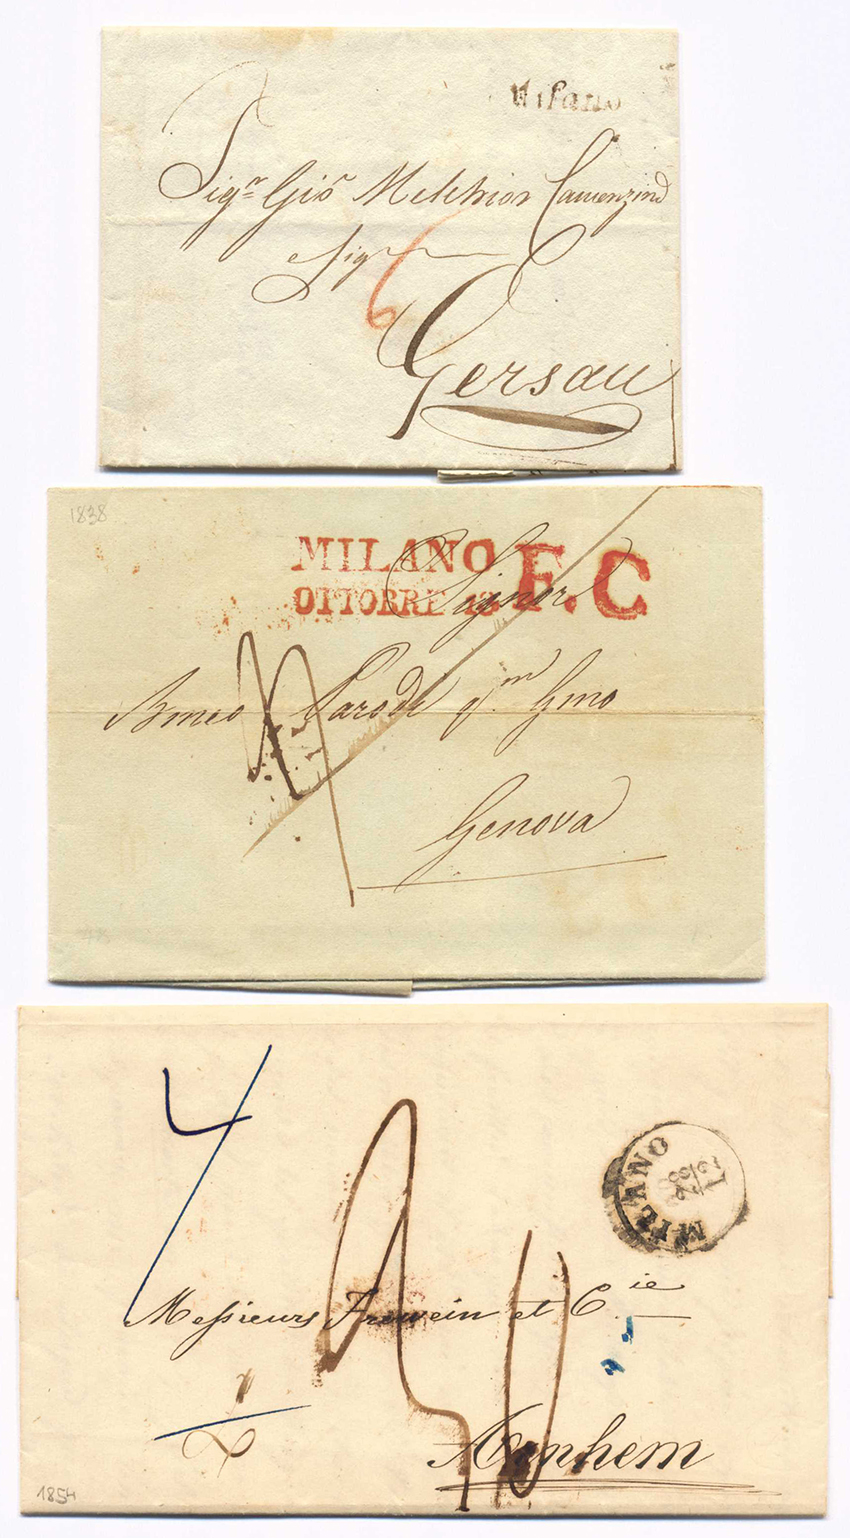 Milano
Sigr. Gio Melchior Camenzind
Sigr
6
Gersau
1838
MILANO F. C
OTTOBRE 18
Signor
Bmeo Parodi qm. Gmo
Genova
4
MILANO
Messieurs Frowein et Cie
Arnhem
1854